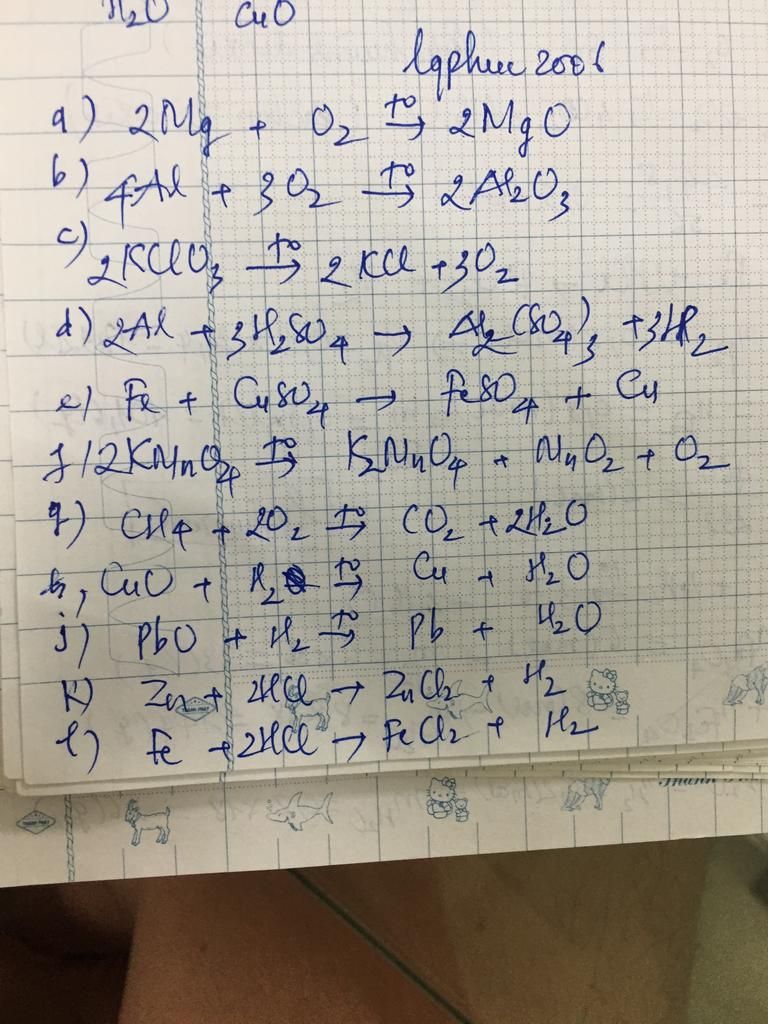 H₂O CuO
lqphuc2006
a) 2Mg + O₂ t°→ 2MgO
b) 4Al + 3O₂ t°→ 2Al₂O₃
c) 2KClO₃ t°→ 2KCl + 3O₂
d) 2Al + 3H₂SO₄ → Al₂(SO₄)₃ + 3H₂
e) Fe + CuSO₄ → FeSO₄ + Cu
f) 2KMnO₄ t°→ K₂MnO₄ + MnO₂ + O₂
g) CH₄ + 2O₂ t°→ CO₂ + 2H₂O
h, CuO + H₂ t°→ Cu + H₂O
j) PbO + H₂ t°→ Pb + H₂O
k) Zn + 2HCl → ZnCl₂ + H₂
l) Fe + 2HCl → FeCl₂ + H₂